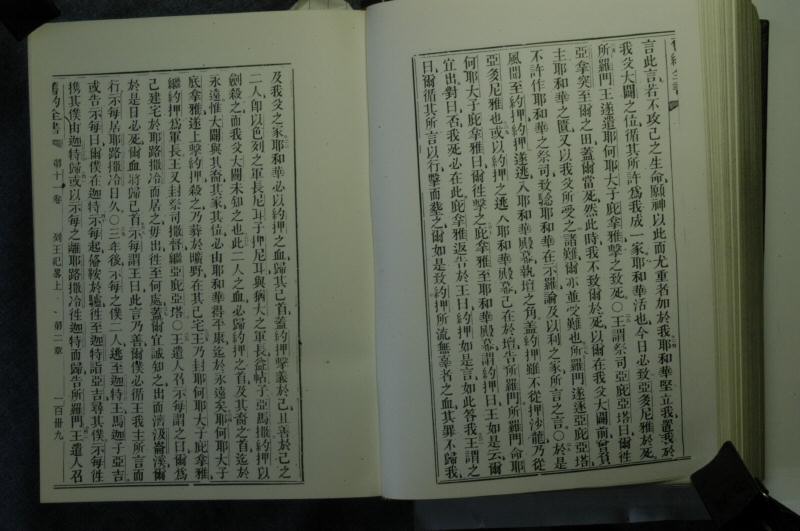 舊約全書
言此言若不攻己之生命願神以此而尤重者加於我耶和華堅立我置我於
我父大闢之位循其所許為我成一家耶和華活也今日必致亞多尼雅於死
所羅門王遂遣耶何耶大子庇拿雅擊之致死○王謂祭司亞庇亞塔曰爾往
亞拿突至爾之田蓋爾當死然此時我不致爾於死以爾在我父大闢前曾負
主耶和華之匱又以我父所受之諸難爾亦並受難也所羅門遂逐亞庇亞塔
不許作耶和華之祭司致驗耶和華在示羅論及以利之家所言之言○於是
風聞至約押約押遂逃入耶和華殿幕執壇之角蓋約押雖不從押沙龍乃從
亞多尼雅也或以約押之逃入耶和華殿幕己在於壇告所羅門所羅門命耶
何耶大子庇拿雅曰爾往擊之庇拿雅至耶和華殿幕謂約押曰王如是云爾
宜出對曰否我死必在此庇拿雅返告於王曰約押如是言如此答我王謂之
曰爾循其所言以行擊而葬之爾如是致約押所流無辜者之血其罪不歸我
及我父之家耶和華必以約押之血歸其己首蓋約押擊義於己且善於己之
二人即以色列之軍長尼耳子押尼耳與猶大之軍長益帖子亞馬撒約押以
劍殺之而我父大闢未知之也此二人之血必歸約押之首及其裔之首迄於
永遠惟大闢與其裔其家其位必由耶和華得平康迄於永遠矣耶何耶大子
庇拿雅遂上擊約押殺之乃葬於曠野在其己宅王乃封耶何耶大子庇拿雅
繼約押為軍長王又封祭司撒督繼亞庇亞塔○王遣人召示每謂之曰爾為
己建宅於耶路撒冷而居之毋出往至何處蓋爾宜誠知之出而濟汲崙溪爾
於是日必死爾血將歸己首示每謂王曰此言乃善爾僕必循王我主所言而
行示每居耶路撒冷日久○三年後示每之僕二人逃至迦特王馬迦子亞吉
或告示每曰爾僕在迦特示每起備鞍於驢往至迦特詣亞吉尋其僕示每往
攜其僕由迦特歸或以示每之離耶路撒冷往迦特而歸告所羅門王遣人召
舊約全書 第十一卷 列王紀畧上 第二章 一百卅九